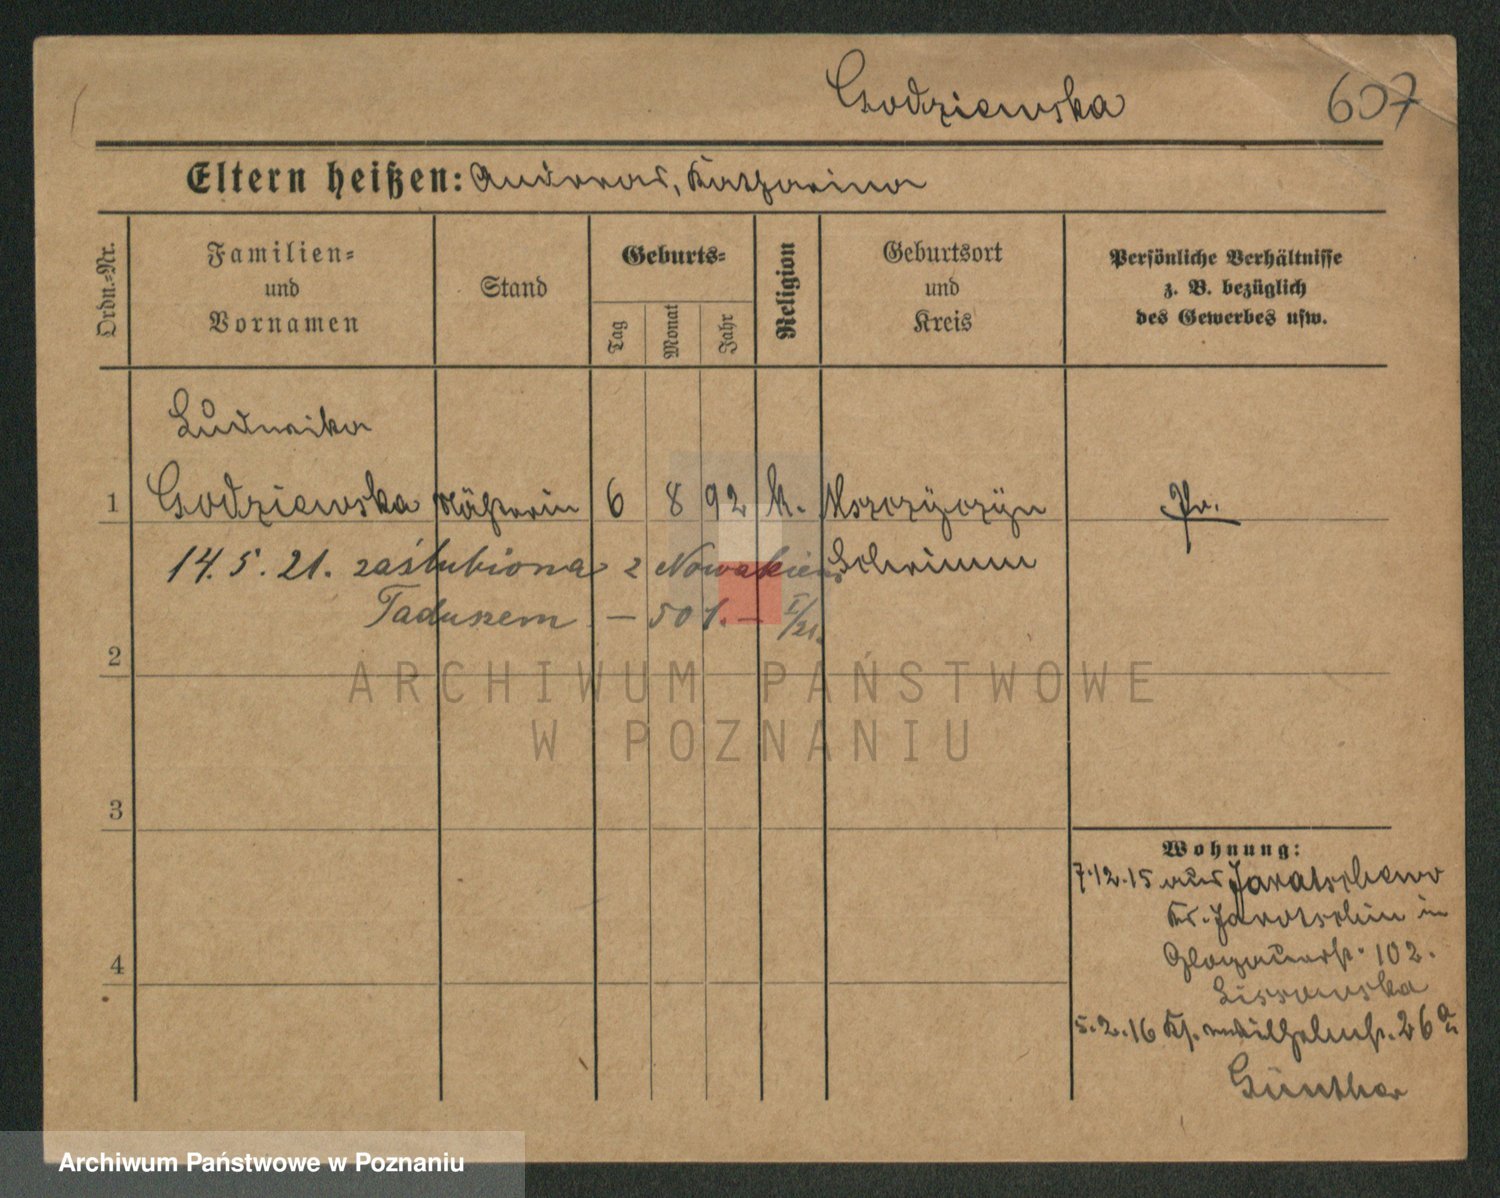 Godziewska 607
Eltern heißen: Andreas, Katharina
Ordn.-Nr.
Familien-
und
Vornamen
Stand
Geburts-
Tag
Monat
Jahr
Religion
Geburtsort
und
Kreis
Persönliche Verhältnisse
z. B. bezüglich
des Gewerbes usw.
Ludwika
1 Godziewska Näherin 6 8 92 k. Mszczyczyn Pr.
14. 5. 21. zaślubiona z Nowakiem Schrimm
Taduszem — 501. — I/21.
2
ARCHIWUM PAŃSTWOWE
W POZNANIU
3
Wohnung:
7.12.15 aus Jaratschewo
Kr. Jarotschin in
Glogauerstr. 102.
Lissowska
4
5.2.16 Ks. Wilhelmstr. 26
Günther
Archiwum Państwowe w Poznaniu